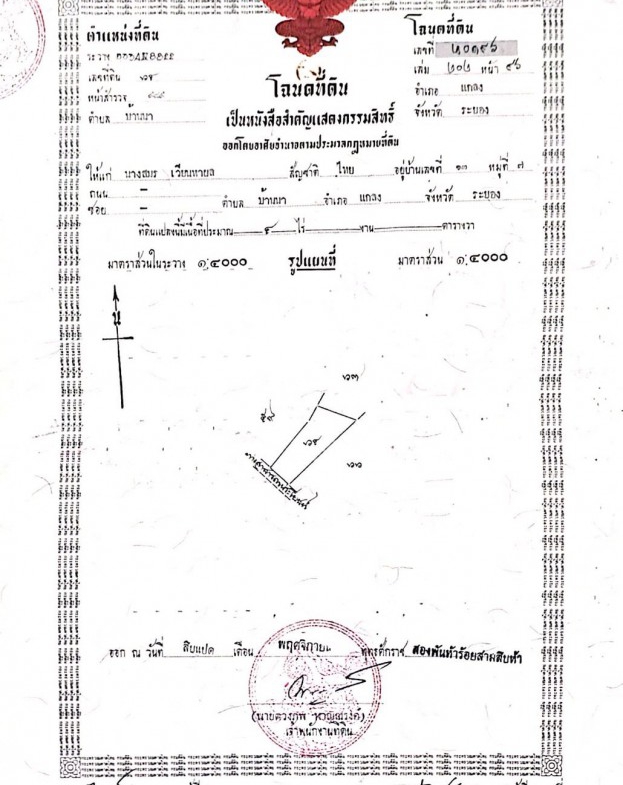 ตำแหน่งที่ดิน
ระวาง
เลขที่ดิน
หน้าสำรวจ
ตำบล บ้านนา
โฉนดที่ดิน
เลขที่
เล่ม ๒๐๒ หน้า ๙๖
อำเภอ แกลง
จังหวัด ระยอง
โฉนดที่ดิน
เป็นหนังสือสำคัญแสดงกรรมสิทธิ์
ออกโดยอาศัยอำนาจตามประมวลกฎหมายที่ดิน
ให้แก่ นางสมร เวียนหายล สัญชาติ ไทย อยู่บ้านเลขที่ ๑๓ หมู่ที่ ๗
ถนน —
ซอย — ตำบล บ้านนา อำเภอ แกลง จังหวัด ระยอง
ที่ดินแปลงนี้มีเนื้อที่ประมาณ ไร่ งาน ตารางวา
มาตราส่วนในระวาง ๑:๔๐๐๐ รูปแผนที่ มาตราส่วน ๑:๔๐๐๐
น
๖๓
๕๙
๖๒
ออก ณ วันที่ สิบแปด เดือน พฤศจิกายน พุทธศักราช สองพันห้าร้อยสามสิบห้า
เจ้าพนักงานที่ดิน